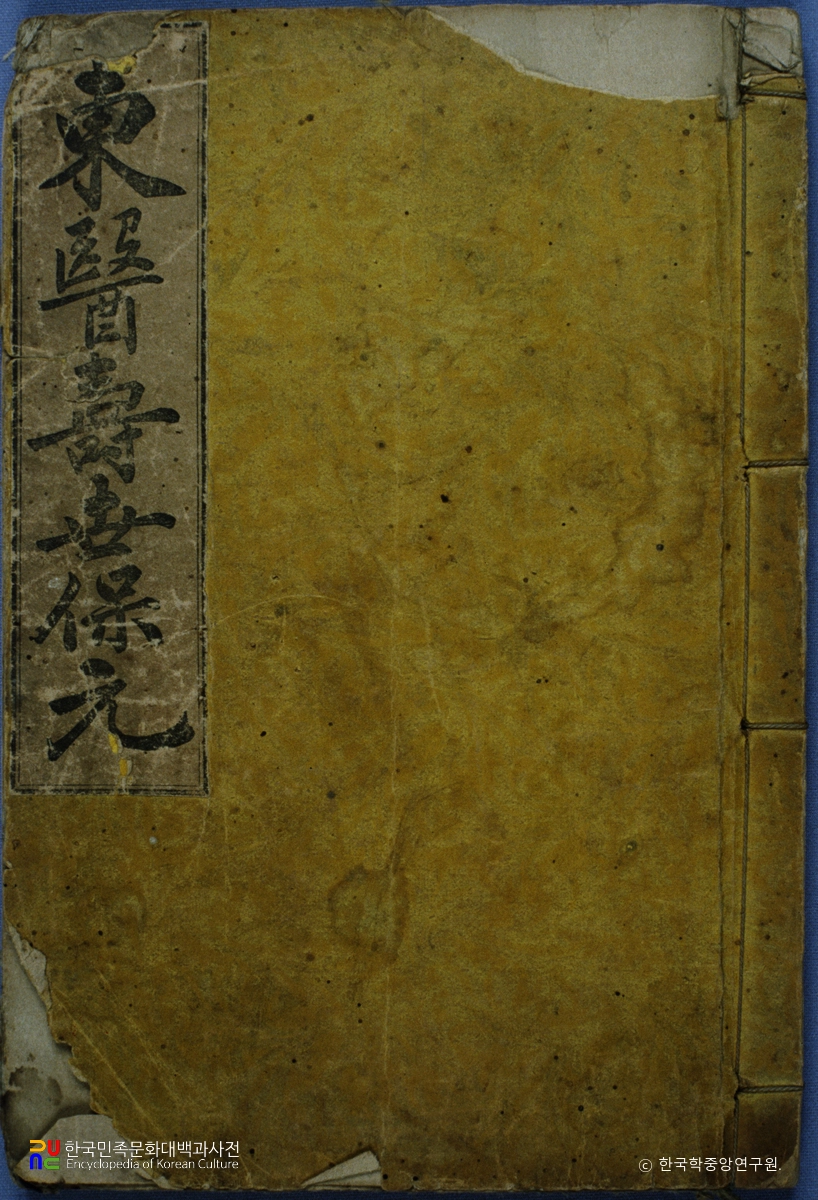 東醫壽世保元
한국민족문화대백과사전
Encyclopedia of Korean Culture
© 한국학중앙연구원.